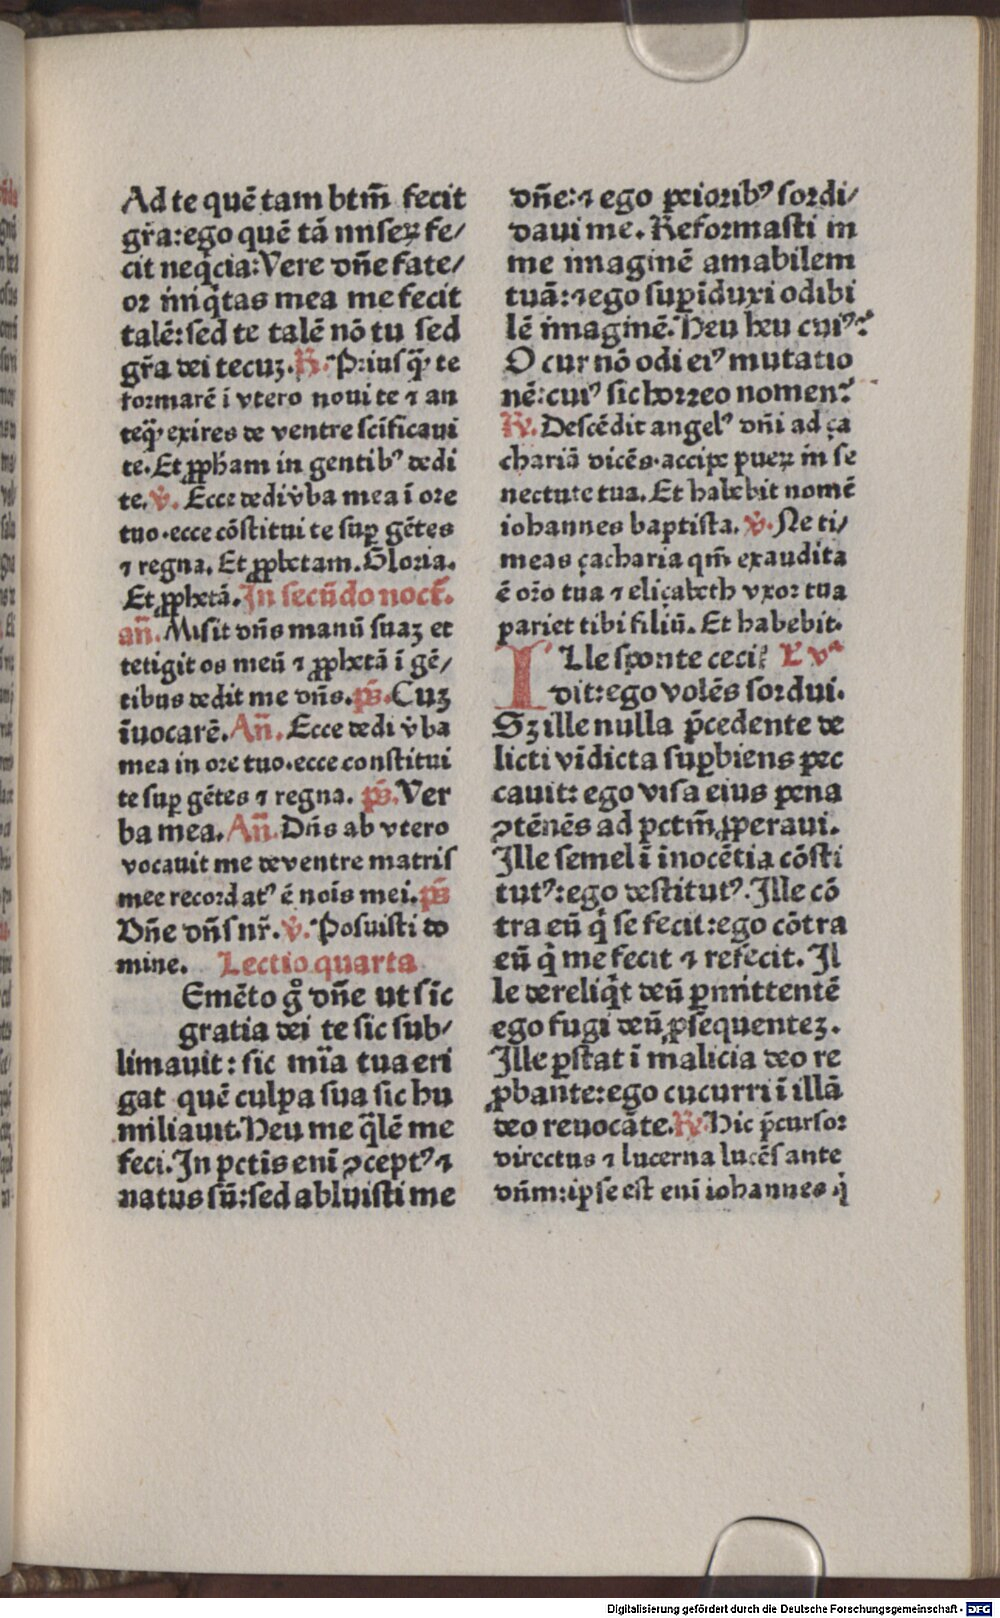 Ad te quē tam btm̄ fecit
gr̄a: ego quē tā mıſeꝝ fe/
cit neq̇cia: Vere dn̄e fate/
or iniq̇tas mea me fecit
talē: sed te talē nō tu sed
gr̄a dei tecuꝫ. R̷. Priusq̈ꝫ te
formarē ī vtero noui te ⁊ an
teq̈ꝫ exires de ventre scīficaui
te. Et ꝓpham in gentibꝰ dedi
te. v̇. Ecce dedi v̇ba mea ī ore
tuo·ecce cōstitui te suꝑ gētes
⁊ regna. Et ꝓphetam. Gloria.
Et ꝓphetā. In secūdo noct̄.
an̄. Misit dn̄s manū suaꝫ et
tetigit os meū ⁊ ꝓphetā ī gē/
tibus dedit me dn̄s. ps̄. Cuꝫ
īuocarē. An̄. Ecce dedi v̇ba
mea in ore tuo·ecce constitui
te suꝑ gētes ⁊ regna. ps̄. Ver
ba mea. An̄. Dn̄s ab vtero
vocauit me de ventre matris
mee recordatꝰ ē noīs mei. ps̄
Dn̄e dn̄s nr̄. v̇. Posuisti do
mine. Lectio quarta
Emēto g̊ dn̄e ut sic
gratia dei te sic sub/
limauit: sic mīa tua eri
gat quē culpa sua sic hu
miliauit. Heu me q̈lē me
feci. In pctīs eni ꝯceptꝰ ⁊
natus sū: sed abluisti me
dn̄e: ⁊ ego peioribꝰ sordi/
daui me. Reformasti in
me imaginē amabilem
tuā: ⁊ ego suꝑīduxi odibi
lē imaginē. Heu heu cuiꝰ?
O cur nō odi eiꝰ mutatio
nē: cuiꝰ sic horreo nomen?
R̷. Descēdit angelꝰ dn̄i ad ça
chariā dicēs·accipe pueꝝ in se
nectute tua. Et habebit nomē
iohannes baptista. v̇. Ne ti/
meas çacharia qm̄ exaudita
ē or̄o tua ⁊ eliçabeth vxor tua
pariet tibi filiū. Et habebit.
Ille sponte ceci L vᵃ
dit: ego volēs sordui.
Sꝫ ille nulla p̄cedente de
licti vīdicta suꝑbiens pec
cauit: ego visa eius pena
ꝯtēnēs ad pctm̄ ꝓperaui.
Ille semel ī inocētia cōsti
tutꝰ: ego destitutꝰ. Ille cō
tra eū q̇ se fecit: ego cōtra
eū q̇ me fecit ⁊ refecit. Il
le dereliq̇t deū ꝑmittentē
ego fugi deū ꝓsequenteꝫ.
Ille ꝑstat ī malicia deo re
ꝓbante: ego cucurri ī illā
deo reuocāte. R̷. Hic p̄cursor
directus ⁊ lucerna lucēs ante
dn̄m: ipse est eni iohannes q̇
Digitalisierung gefördert durch die Deutsche Forschungsgemeinschaft - DFG